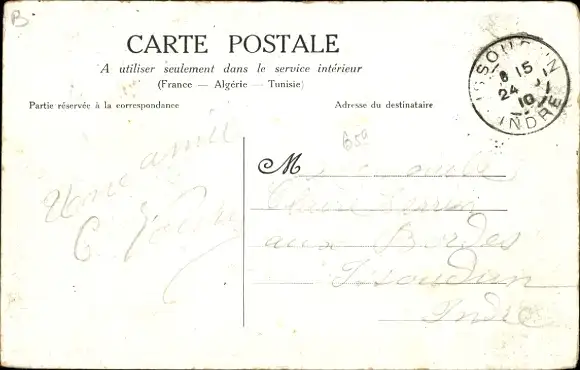 B
CARTE POSTALE
A utiliser seulement dans le service intérieur
(France — Algérie — Tunisie)
Partie réservée à la correspondance
Adresse du destinataire
ISSOUDUN
8 15
24
10
INDRE
M
Claire
aux Bordes
Issoudun
Indre